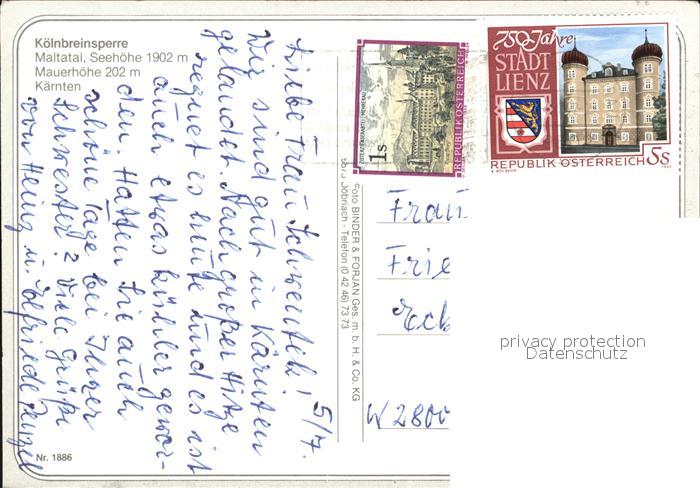 Kölnbreinsperre
Maltatal, Seehöhe 1902 m
Mauerhöhe 202 m
Kärnten
5/7.
Liebe Frau Schwenteck!
Wir sind gut in Kärnten
gelandet. Nach großer Hitze
regnet es heute und es ist
auch etwas kühler gewor-
den. Hatten Sie auch
schöne Tage bei Ihrer
Schwester? Viele Grüße
von Heinz u. Elfriede
Nr. 1886
Foto BINDER & FORJAN Ges. m. b. H. & Co. KG
Döbriach - Telefon (0 42 46) 73 73
1s
REPUBLIK ÖSTERREICH
750 Jahre
STADT
LIENZ
REPUBLIK ÖSTERREICH 5s
Frau
Frie
Eck
W 2800
privacy protection
Datenschutz